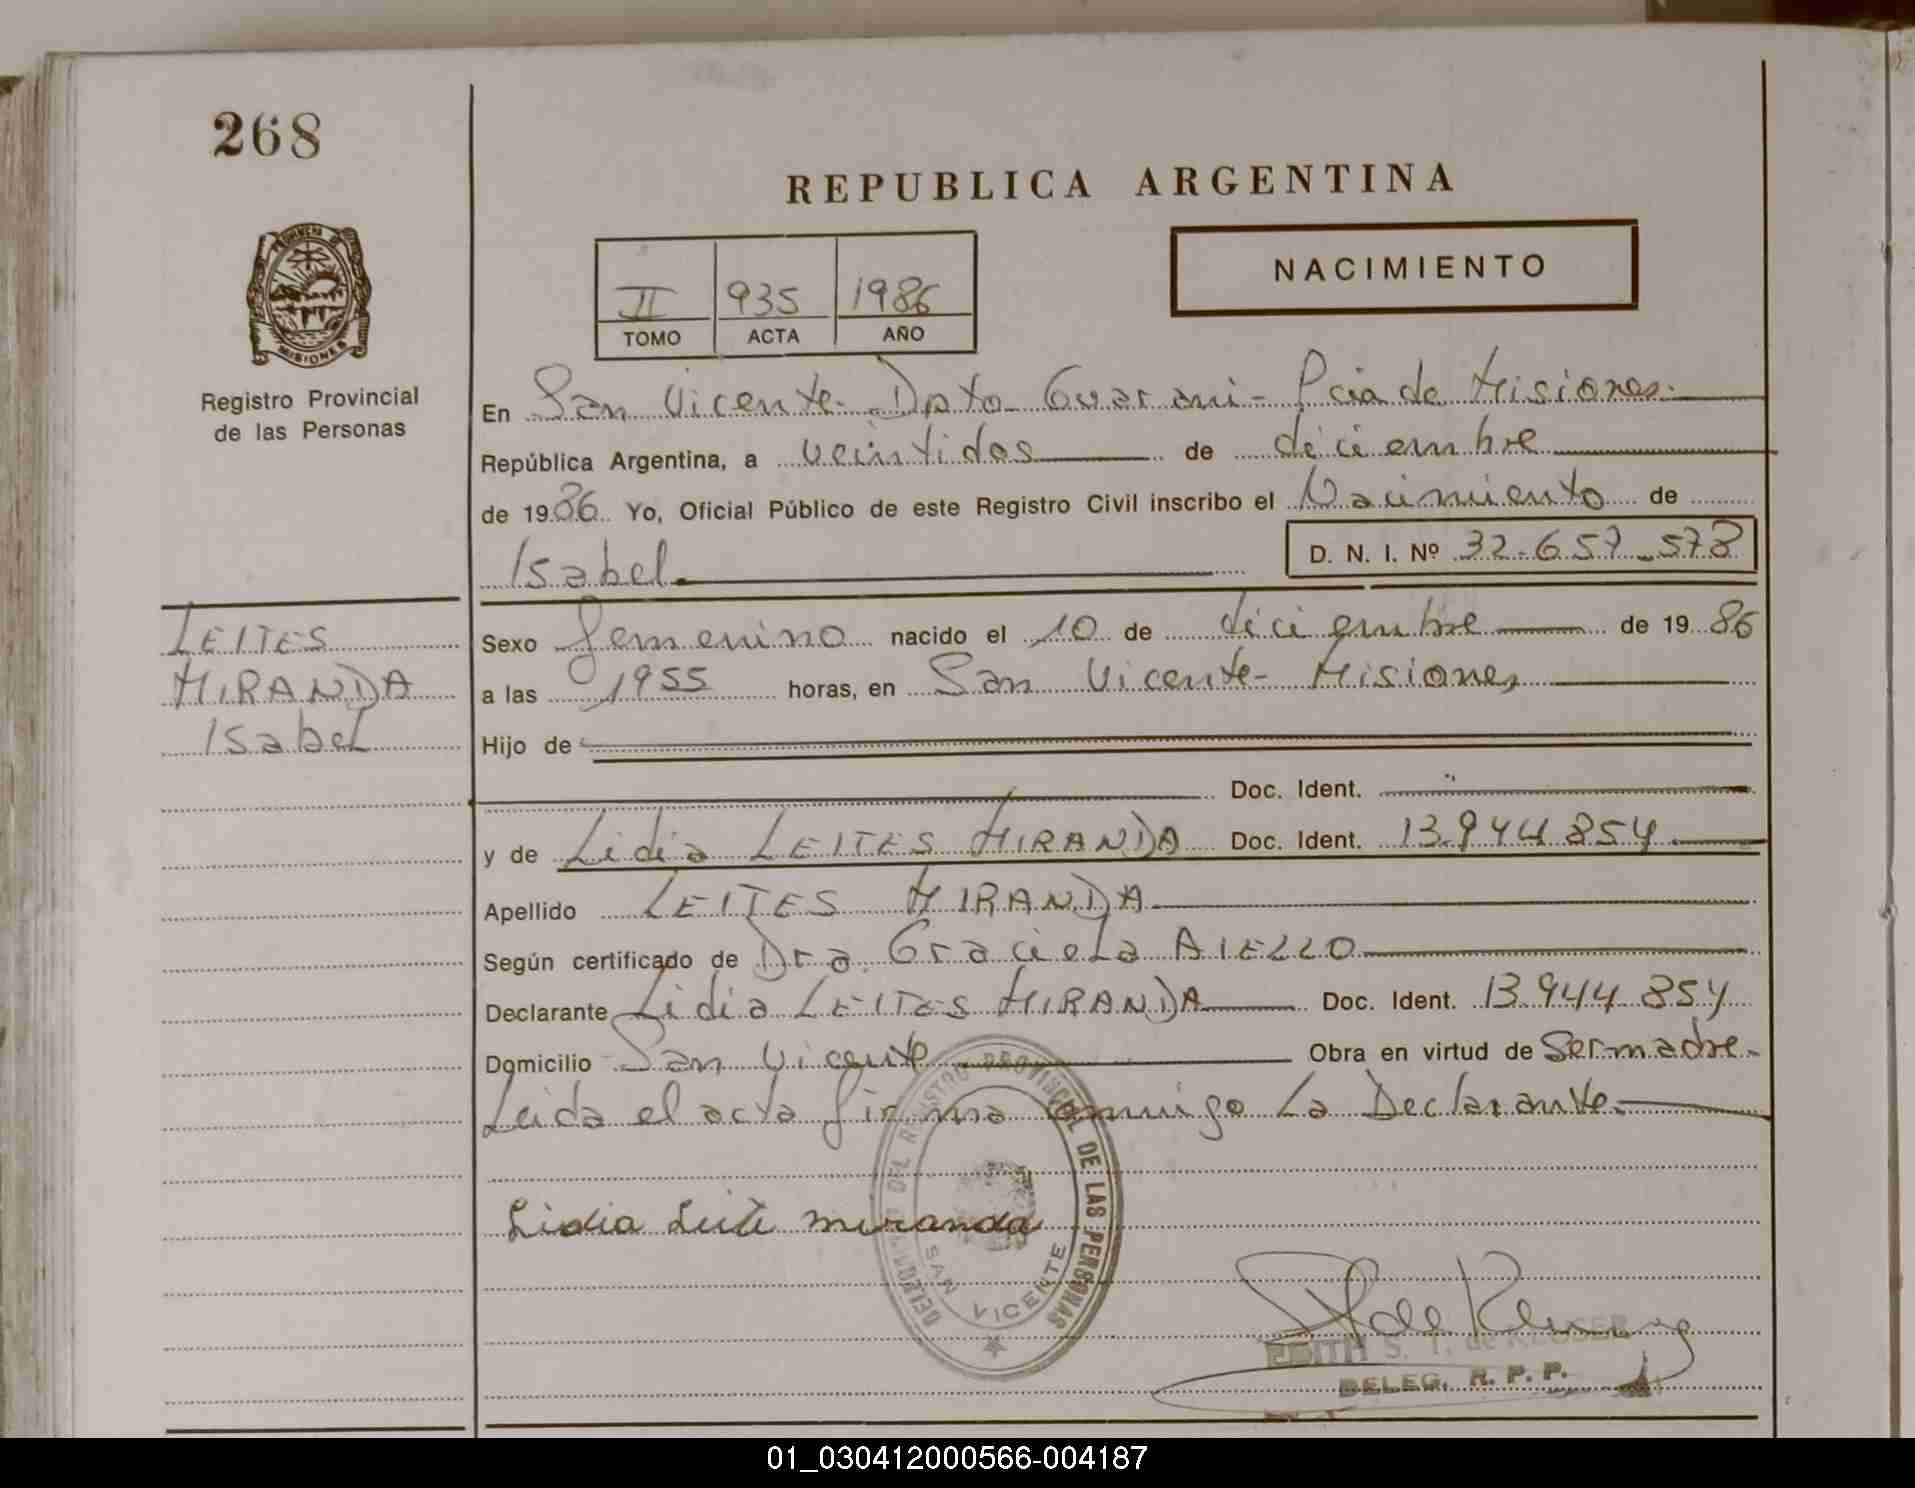 268
REPUBLICA ARGENTINA
NACIMIENTO
II 935 1986
TOMO ACTA AÑO
PROVINCIA DE
MISIONES
Registro Provincial
de las Personas
En San Vicente - Dpto Guarani - Pcia de Misiones.
República Argentina, a veintidos de diciembre
de 1986 Yo, Oficial Público de este Registro Civil inscribo el Nacimiento de
Isabel. D. N. I. Nº 32.657.578
LEITES
MIRANDA
Isabel
Sexo femenino nacido el 10 de diciembre de 1986
a las 1955 horas, en San Vicente - Misiones
Hijo de
Doc. Ident.
y de Lidia LEITES MIRANDA Doc. Ident. 13.944.854
Apellido LEITES MIRANDA
Según certificado de Dra. Graciela AIELLO
Declarante Lidia LEITES MIRANDA Doc. Ident. 13.944.854
Domicilio San Vicente Obra en virtud de Ser madre.
Leida el acta firma conmigo La Declarante.
Lidia Leite miranda
DEL REGISTRO PROVINCIAL DE LAS PERSONAS
SAN VICENTE
EDITH S. T. de KLUSER
DELEG. R. P. P.
01_030412000566-004187